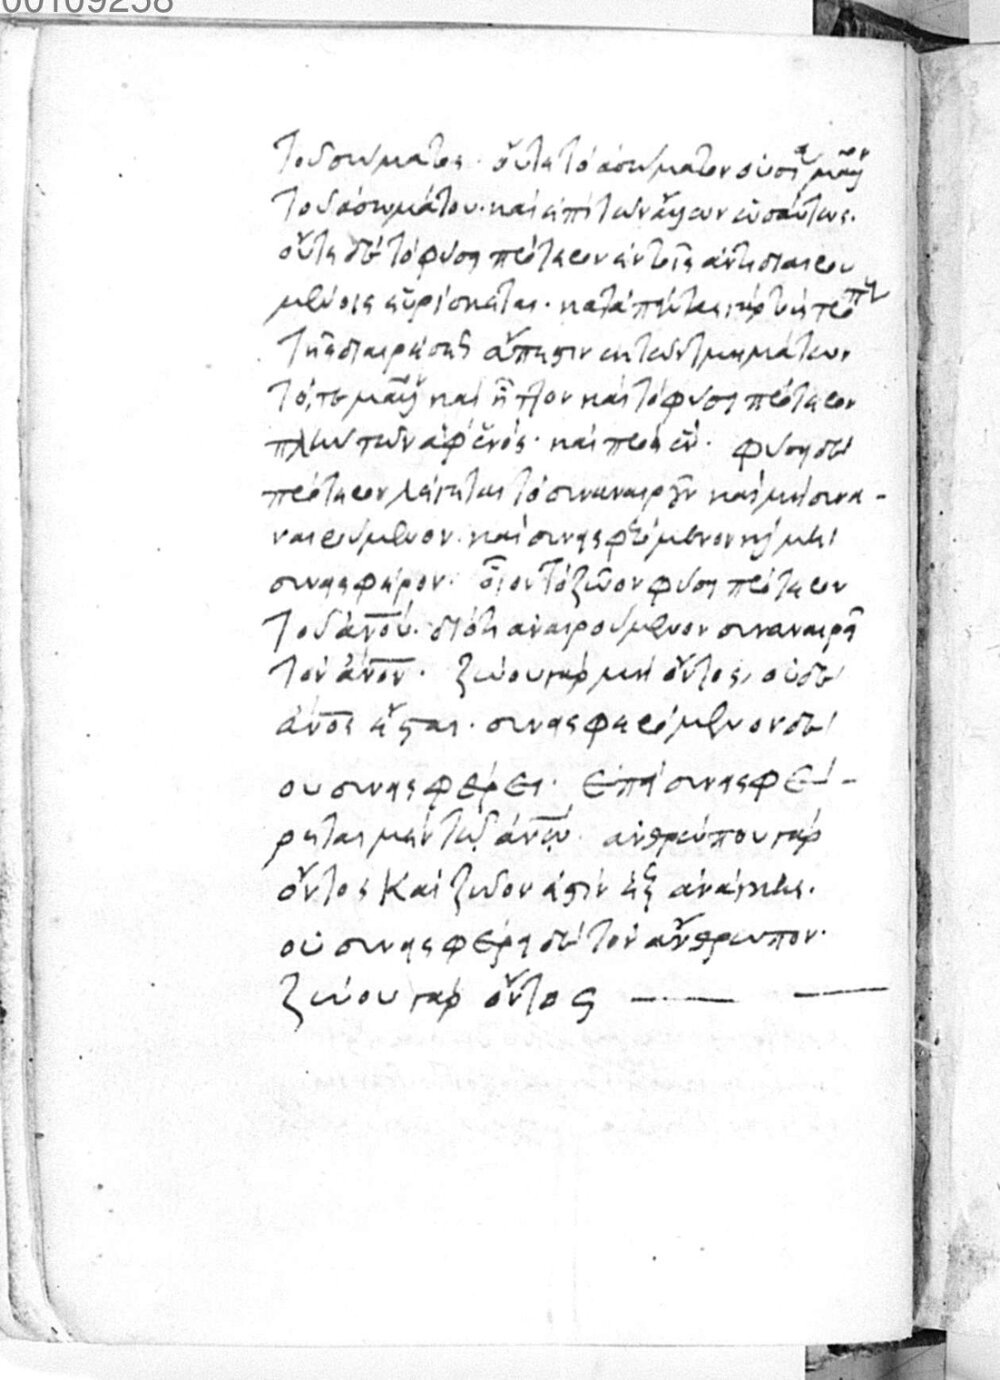 00109258
τοῦ σώματος· οὔτε τὸ ἀσώματον οὐσία μᾶλλον
τοῦ ἀσωμάτου· καὶ ἐπὶ τῶν ἄλλων ὡσαύτως.
οὔτε δὲ τὸ φύσει πρότερον ἐν τοῖς ἀντιδιαιρου
μένοις εὑρίσκεται· κατὰ πάντας γὰρ τοὺς
τῆς διαιρέσεως ἄπεστιν ἐκ τῶν τμημάτων
τό, τε μᾶλλον καὶ ἧττον καὶ τὸ φύσει πρότερον
πλὴν τῶν ἀφ' ἑνὸς· καὶ πρὸς ἕν· φύσει δὲ
πρότερον λέγεται τὸ συναναιροῦν καὶ μὴ συνα-
ναιρούμενον· καὶ συνεισφερόμενον καὶ μὴ
συνεισφέρον· οἷον τὸ ζῶον φύσει πρότερον
τοῦ ἀνου· διότι ἀναιρούμενον συναναιρεῖ
τὸν ἀνον· ζώου γὰρ μὴ ὄντος, οὐδὲ
ἀνος ἔσται· συνεισφερόμενον δὲ
οὐ συνεισφέρει· ἐπεὶ συνεισφέ-
ρεται μὲν τῷ ἀνω· ἀνθρώπου γὰρ
ὄντος καὶ ζῶον ἐστὶν ἐξ ἀνάγκης.
οὐ συνεισφέρει δὲ τὸν ἄνθρωπον·
ζώου γὰρ ὄντος